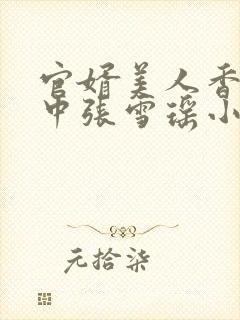 官婿美人香
中张雪瑶小
元拾柒